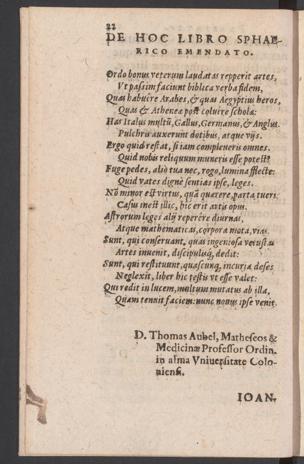 22
DE HOC LIBRO SPHAE-
RICO EMENDATO.
Ordo bonus veterum laudatas repperit artes,
Vt passim faciunt biblica verba fidem,
Quas habuêre Arabes, & quas Aegyptius heros,
Quas & Athenea post coluire schola:
Has Italus multũ, Gallus, Germanus, & Anglus
Pulchris auxerunt dotibus, atque vijs.
Ergo quid restat, si iam compleueris omnes.
Quid nobis reliquum muneris esse potest?
Fuge pedes, aliò tua nec, rogo, lumina flecte:
Quid vates dignè sentias ipse, leges.
Nõ minor est virtus, quã quaerere, parta tueri:
Casus inest illic, hic erit artis opus.
Astrorum leges alij reperêre diurnas,
Atque mathematicas, corpora mota, vias.
Sunt, qui conseruant, quas ingeniosa vetustas
Artes inuenit, discipulisq; dedit:
Sunt, qui restituunt, quascunq; incuria deses
Neglexit, liber hic testis vt esse valet.
Qui redit in lucem, multum mutatus ab illa,
Quam tenuit faciem: nunc nouus ipse venit.
D. Thomas Aubel, Matheseos &
Medicinae Professor Ordin.
in alma Vniuersitate Colo-
niensi.
IOAN.